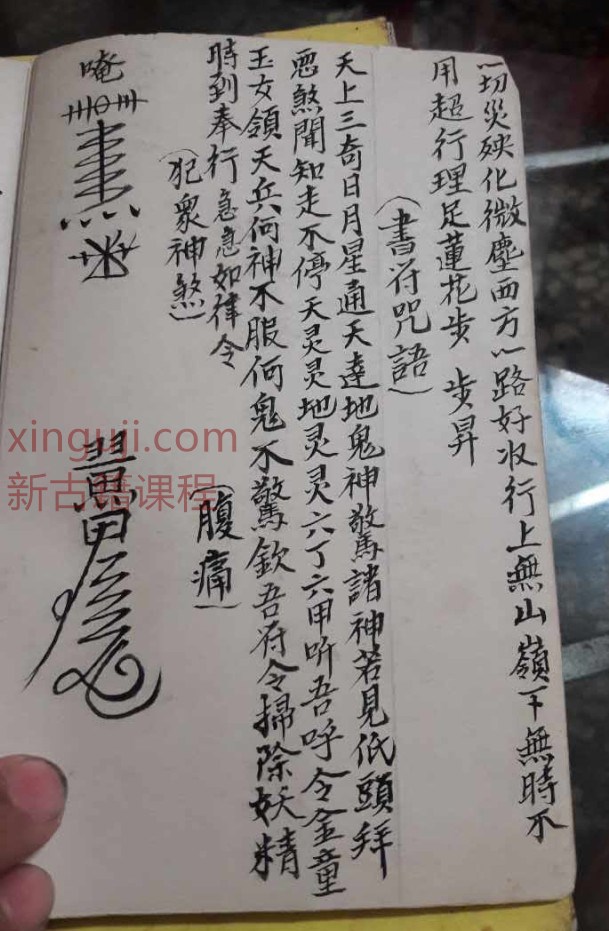 一切災殃化微塵西方一路好收行上無山嶺下無時不
用超行理足蓮花步 步昇
(書符咒語)
天上三奇日月星通天達地鬼神驚諸神若見低頭拜
惡煞聞知走不停天灵灵地灵灵六丁六甲听吾呼令金童
玉女領天兵何神不服何鬼不驚欽吾符令掃除妖精
時到奉行急急如律令
(犯衆神煞)
(腹痛)
唵
xinguji.com
新古籍课程